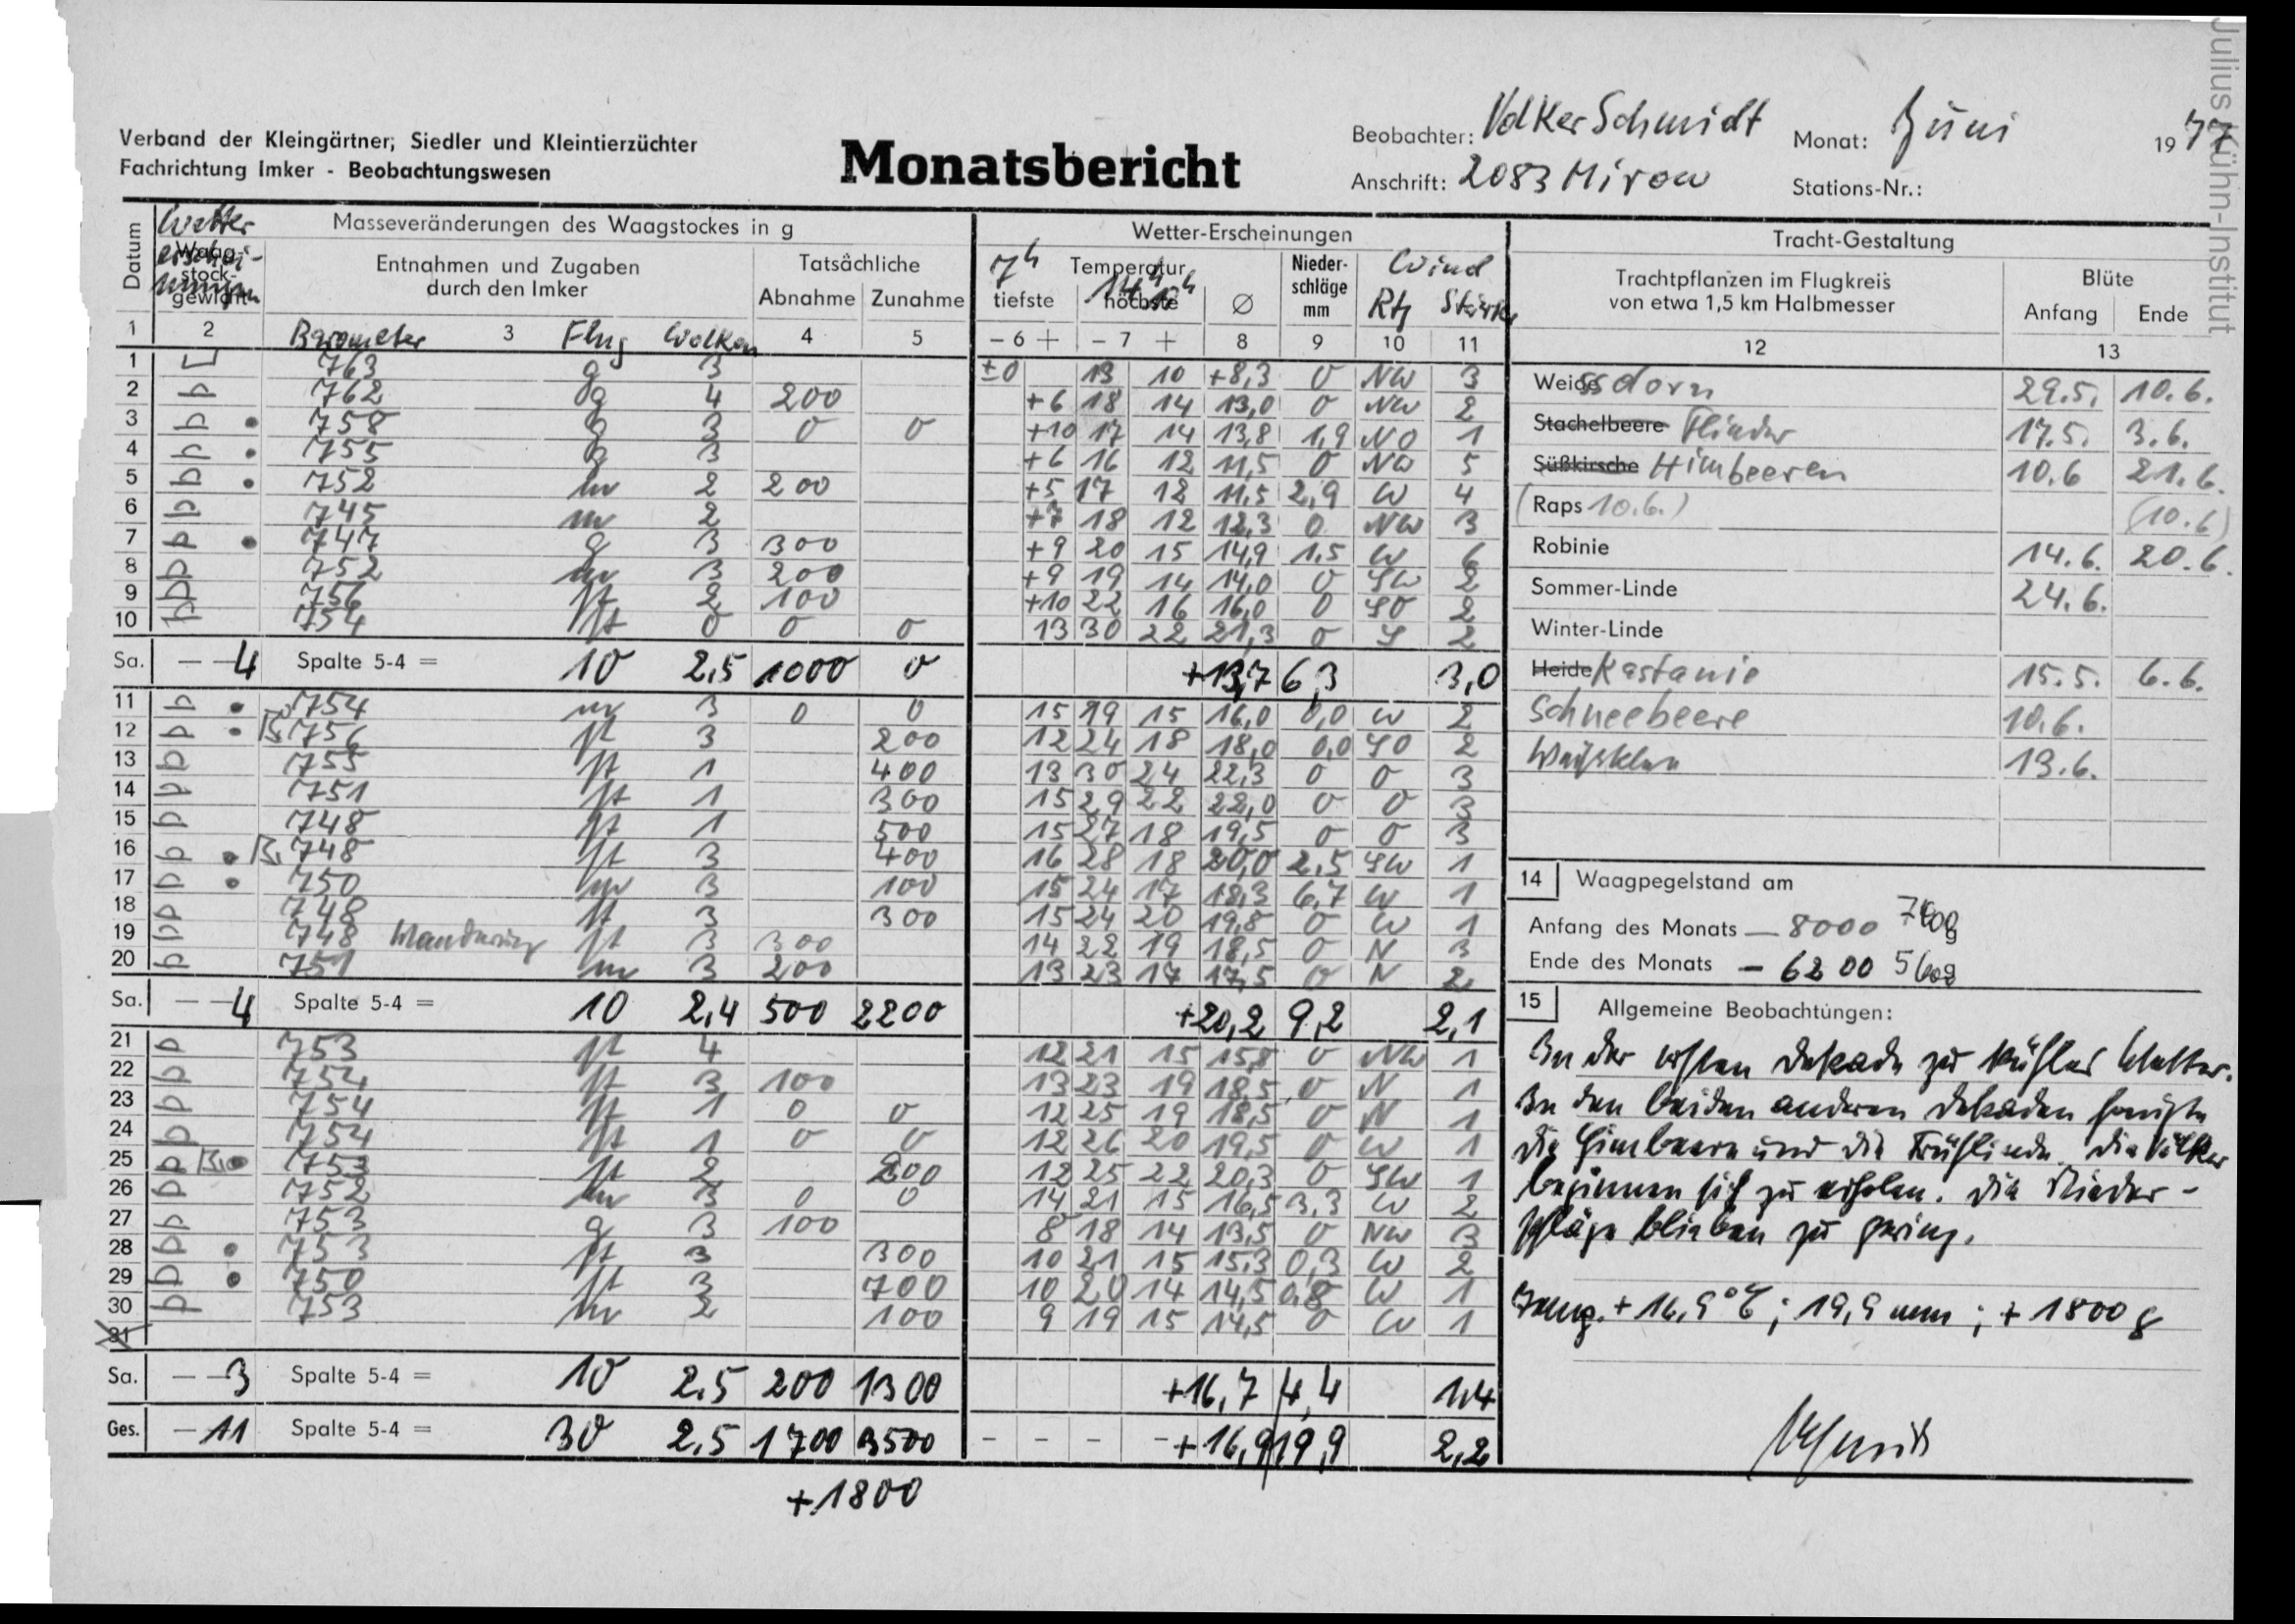 Julius Kühn-Institut
Verband der Kleingärtner, Siedler und Kleintierzüchter
Fachrichtung Imker - Beobachtungswesen
Monatsbericht
Beobachter: Volker Schmidt Monat: Juni 1977
Anschrift: 2083 Mirow Stations-Nr.:
Datum Wetter Masseveränderungen des Waagstockes in g Wetter-Erscheinungen Tracht-Gestaltung
Waag-stock-gewicht Entnahmen und Zugaben durch den Imker Tatsächliche Abnahme Zunahme 7h Temperatur tiefste höchste 14h ∅ Nieder-schläge mm Wind Rtg Stärke Trachtpflanzen im Flugkreis von etwa 1,5 km Halbmesser Blüte Anfang Ende
1 2 Barometer 3 Flug Wolken 4 5 - 6 + - 7 + 8 9 10 11 12 13
1 763 g 3 ±0 13 10 +8,3 0 NW 3
2 762 g 4 200 +6 18 14 13,0 0 NW 2
3 758 g 3 0 0 +10 17 14 13,8 1,9 NO 1
4 755 g 3 +6 16 12 11,5 0 NW 5
5 752 m 2 200 +5 17 12 11,5 2,9 W 4
6 745 m 2 +7 18 12 12,3 0 NW 3
7 747 g 3 300 +9 20 15 14,9 1,5 W 6
8 752 m 3 200 +9 19 14 14,0 0 SW 2
9 756 st 2 100 +10 22 16 16,0 0 SO 2
10 754 st 0 0 0 13 30 22 21,3 0 S 2
Sa. - -4 Spalte 5-4 = 10 2,5 1000 0 +13,7 6,3 3,0
11 754 m 3 0 0 15 19 15 16,0 0,0 W 2
12 756 st 3 200 12 24 18 18,0 0,0 SO 2
13 755 st 1 400 13 30 24 22,3 0 O 3
14 751 st 1 300 15 29 22 22,0 0 O 3
15 748 st 1 500 15 27 18 19,5 0 O 3
16 748 st 3 400 16 28 18 20,0 2,5 SW 1
17 750 m 3 100 15 24 17 18,3 6,7 W 1
18 748 st 3 300 15 24 20 19,8 0 W 1
19 748 Wanderung st 3 300 14 22 19 18,5 0 N 3
20 751 m 3 200 13 23 17 17,5 0 N 2
Sa. - -4 Spalte 5-4 = 10 2,4 500 2200 +20,2 9,2 2,1
21 753 st 4 12 21 15 15,8 0 NW 1
22 754 st 3 100 13 23 19 18,5 0 N 1
23 754 st 1 0 0 12 25 19 18,5 0 N 1
24 754 st 1 0 0 12 26 20 19,5 0 W 1
25 753 st 2 200 12 25 22 20,3 0 SW 1
26 752 m 3 0 0 14 21 15 16,5 3,3 W 2
27 753 g 3 100 8 18 14 13,5 0 NW 3
28 753 st 3 300 10 21 15 15,3 0,3 W 2
29 750 st 3 700 10 20 14 14,5 0,8 W 1
30 753 m 2 100 9 19 15 14,5 0 W 1
31
Sa. - -3 Spalte 5-4 = 10 2,5 200 1300 +16,7 4,4 1,4
Ges. - 11 Spalte 5-4 = 30 2,5 1700 3500 - - - - +16,9 19,9 2,2
+1800
Weissdorn 29.5. 10.6.
Stachelbeere Flieder 17.5. 3.6.
Süßkirsche Himbeeren 10.6 21.6.
(Raps 10.6.) (10.6)
Robinie 14.6. 20.6.
Sommer-Linde 24.6.
Winter-Linde
Heide Kastanie 15.5. 6.6.
Schneebeere 10.6.
Weissklee 13.6.
14 Waagpegelstand am
Anfang des Monats - 8000 g
Ende des Monats - 6200 g
15 Allgemeine Beobachtungen:
In der ersten Dekade zu kühles Wetter.
In den beiden anderen Dekaden honigte
die Himbeere und die Frühlinde. Die Völker
beginnen sich zu erholen. Die Nieder-
schläge blieben zu gering.
+ 16,9°C ; 19,9 mm ; + 1800 g